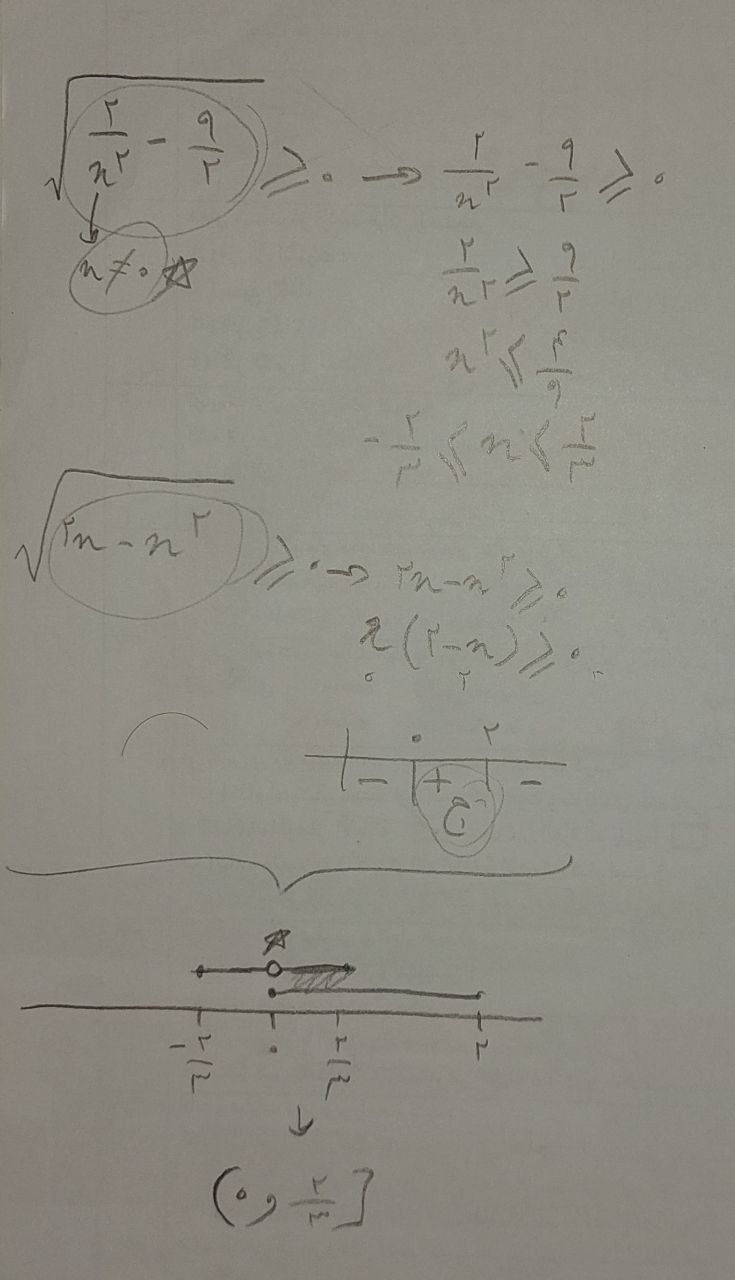 √(۲/x^۲ - ۹/۲) ≥ ۰ → ۲/x^۲ - ۹/۲ ≥ ۰
x ≠ ۰ ☆
۲/x^۲ ≥ ۹/۲
x^۲ ≤ ۴/۹
-۲/۳ ≤ x ≤ ۲/۳
√(۲x - x^۲) ≥ ۰ → ۲x - x^۲ ≥ ۰
x(۲-x) ≥ ۰
۰ ۲
۰ ۲
- + -
ج
☆
-۲/۳ ۰ ۲/۳ ۲
↓
(۰, ۲/۳]